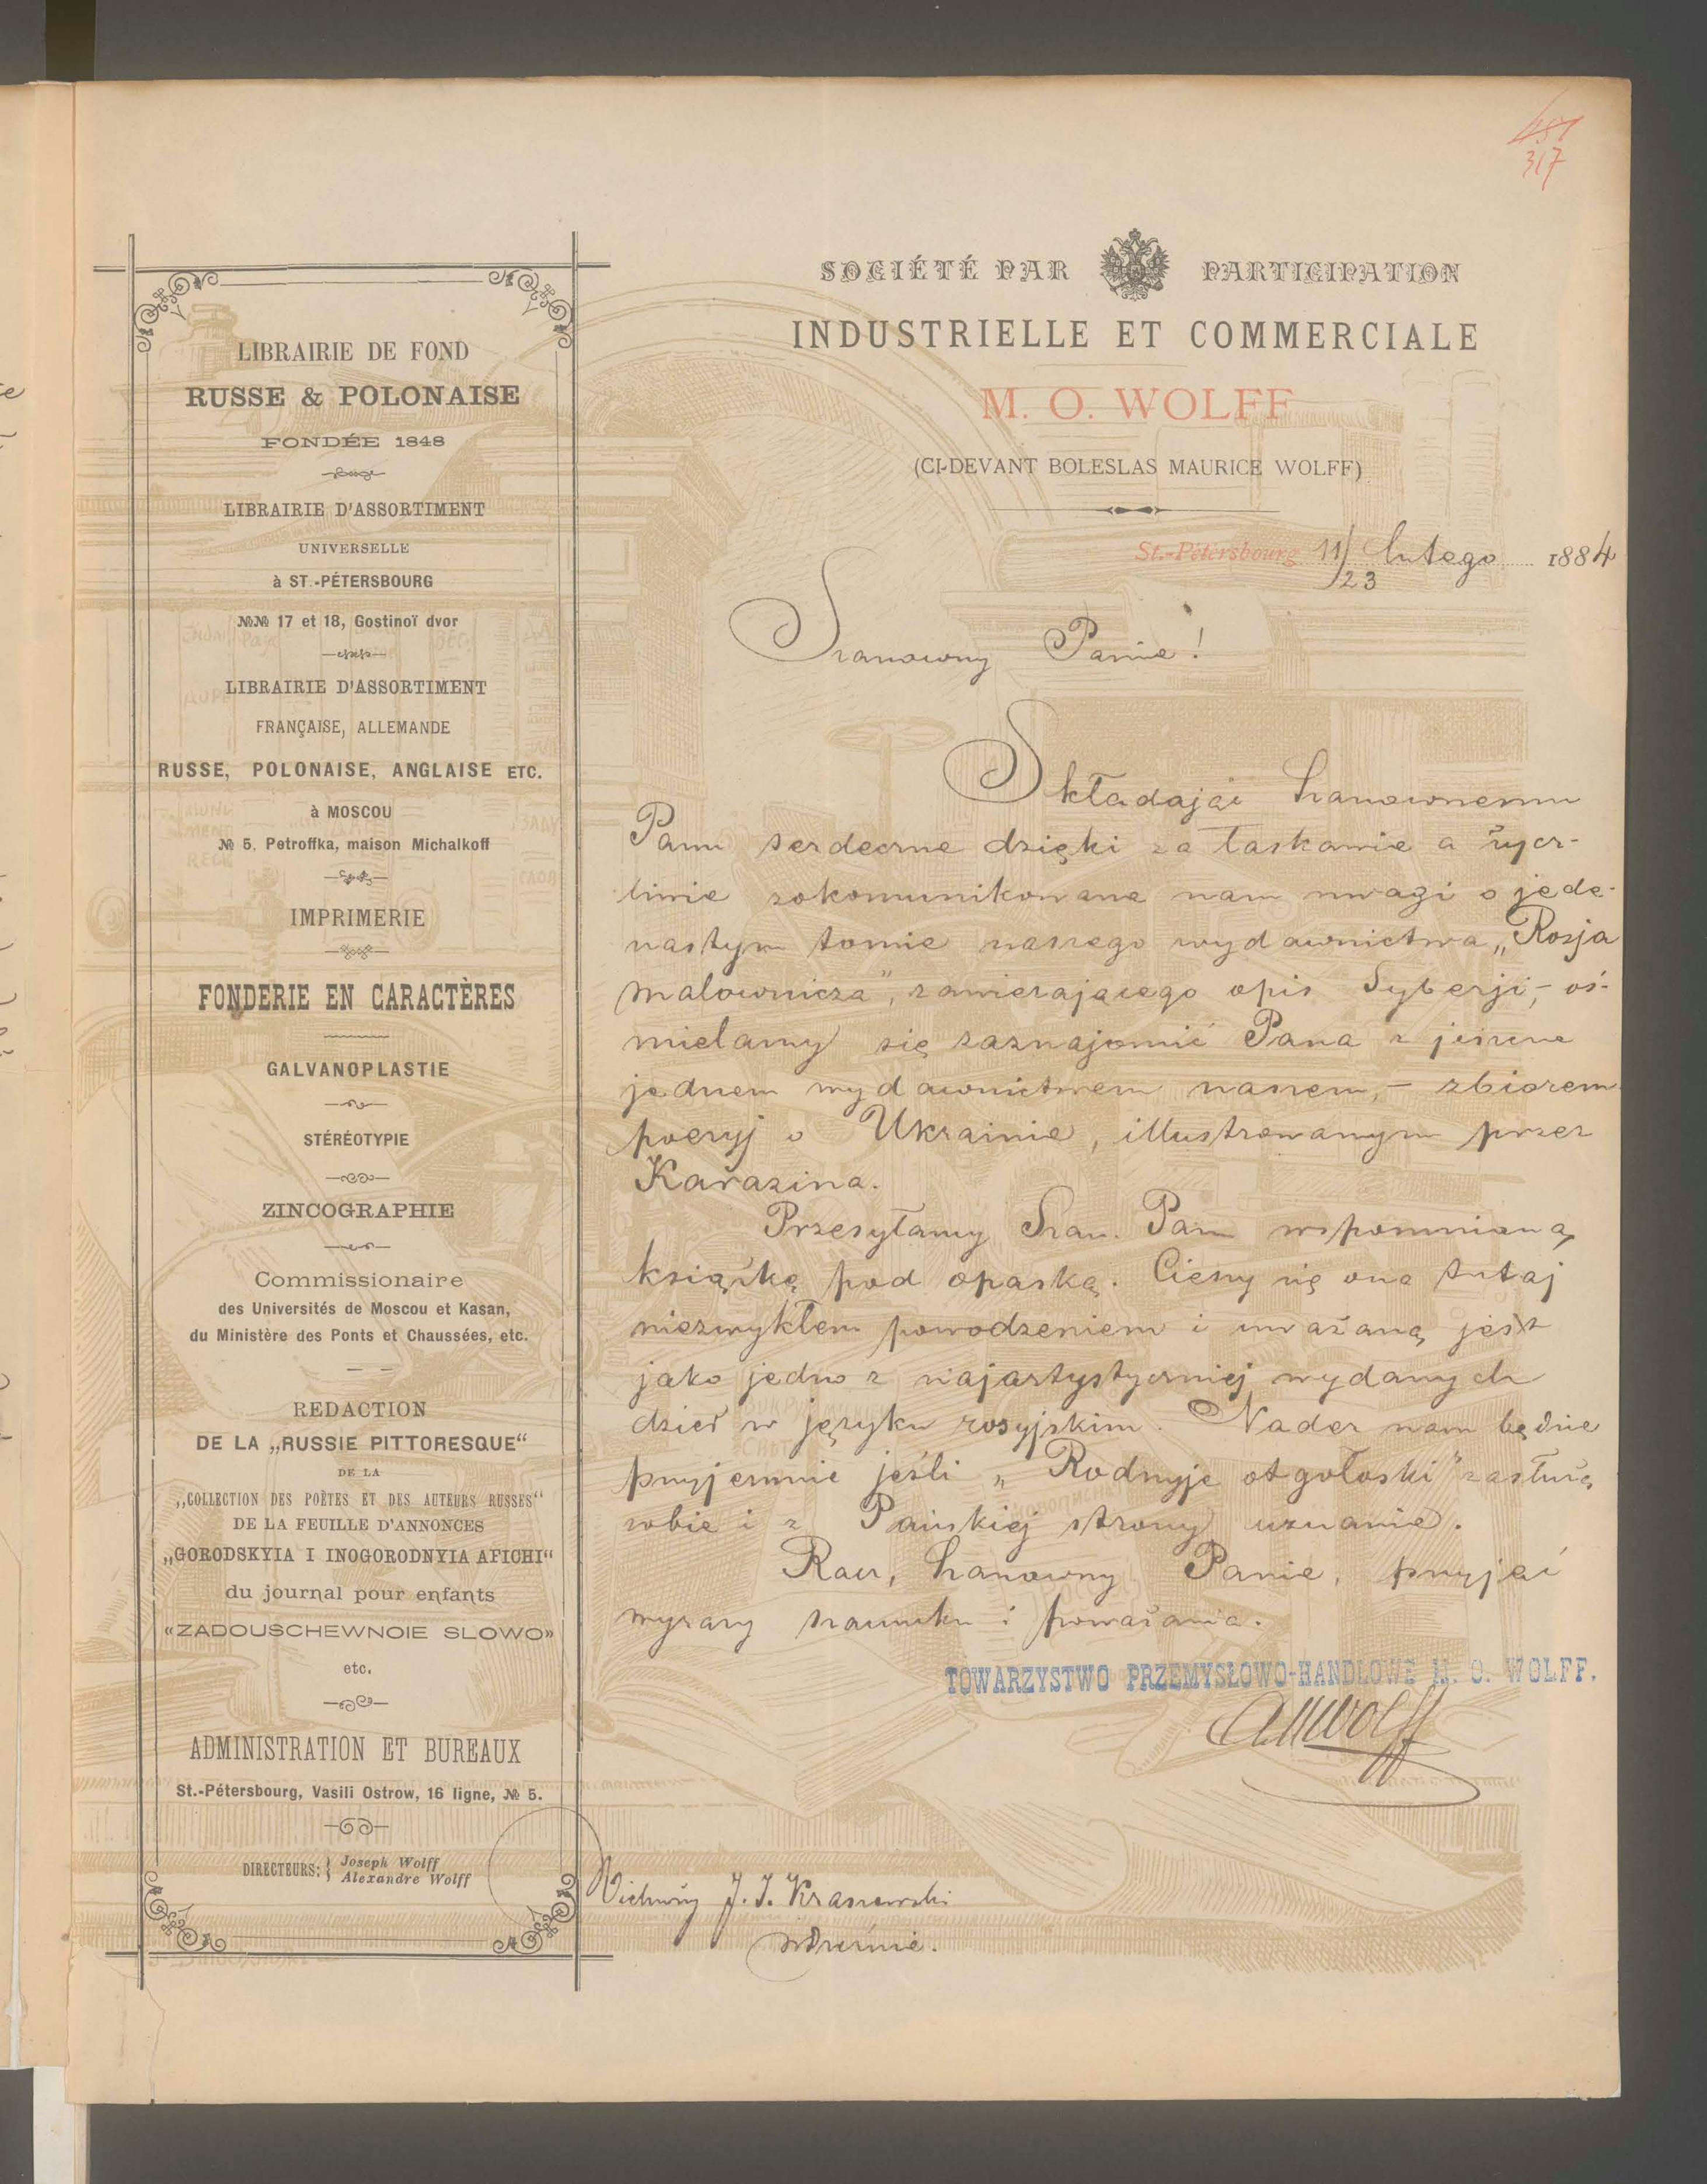 317
LIBRAIRIE DE FOND
RUSSE & POLONAISE
FONDÉE 1848
LIBRAIRIE D'ASSORTIMENT
UNIVERSELLE
à ST.-PÉTERSBOURG
№№ 17 et 18, Gostinoï dvor
LIBRAIRIE D'ASSORTIMENT
FRANÇAISE, ALLEMANDE
RUSSE, POLONAISE, ANGLAISE ETC.
à MOSCOU
№ 5, Petroffka, maison Michalkoff
IMPRIMERIE
FONDERIE EN CARACTÈRES
GALVANOPLASTIE
STÉRÉOTYPIE
ZINCOGRAPHIE
Commissionaire
des Universités de Moscou et Kasan,
du Ministère des Ponts et Chaussées, etc.
REDACTION
DE LA „RUSSIE PITTORESQUE“
DE LA
„COLLECTION DES POÈTES ET DES AUTEURS RUSSES“
DE LA FEUILLE D'ANNONCES
„GORODSKYIA I INOGORODNYIA AFICHI“
du journal pour enfants
«ZADOUSCHEWNOIE SLOWO»
etc.
ADMINISTRATION ET BUREAUX
St.-Pétersbourg, Vasili Ostrow, 16 ligne, № 5.
DIRECTEURS: Joseph Wolff
Alexandre Wolff
SOCIÉTÉ PAR PARTICIPATION
INDUSTRIELLE ET COMMERCIALE
M. O. WOLFF
(CI-DEVANT BOLESLAS MAURICE WOLFF)
St.-Pétersbourg 11/23 lutego 1884
Szanowny Panie!
Składając Szanownemu
Panu serdeczne dzięki za łaskawie a życz-
liwie zakomunikowane nam uwagi o jede-
nastym tomie naszego wydawnictwa „Rosja
malownicza”, zawierającego opis Syberji, – oś-
mielamy się zaznajomić Pana z jeszcze
jednem wydawnictwem naszem, – zbiorem
poezyj o Ukrainie, illustrowanym przez
Karazina.
Przesyłamy Szan. Panu wspomnianą
książkę pod opaską. Cieszy się ona tutaj
niezwykłem powodzeniem i uważaną jest
jako jedno z najartystyczniej wydanych
dzieł w języku rosyjskim. Nader nam będzie
przyjemnie jeśli „Rodnyje otgołoski” zasłużą
sobie i z Pańskiej strony uznanie.
Racz, Szanowny Panie, przyjąć
wyrazy szacunku i poważania.
TOWARZYSTWO PRZEMYSŁOWO-HANDLOWE M. O. WOLFF.
AMWolff
Wielmożny J. I. Kraszewski
w Dreźnie.